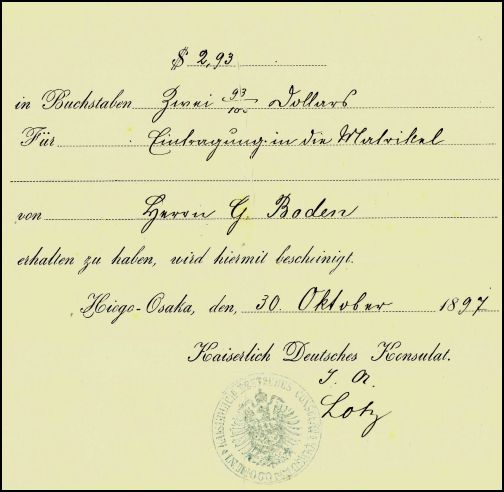 $ 2,93
in Buchstaben Zwei 93/100 Dollars
Für Eintragung in die Matrikel
von Herrn G. Boden
erhalten zu haben, wird hiermit bescheinigt.
Hiogo-Osaka, den, 30. Oktober 1897
Kaiserlich Deutsches Konsulat.
J. A.
Lotz